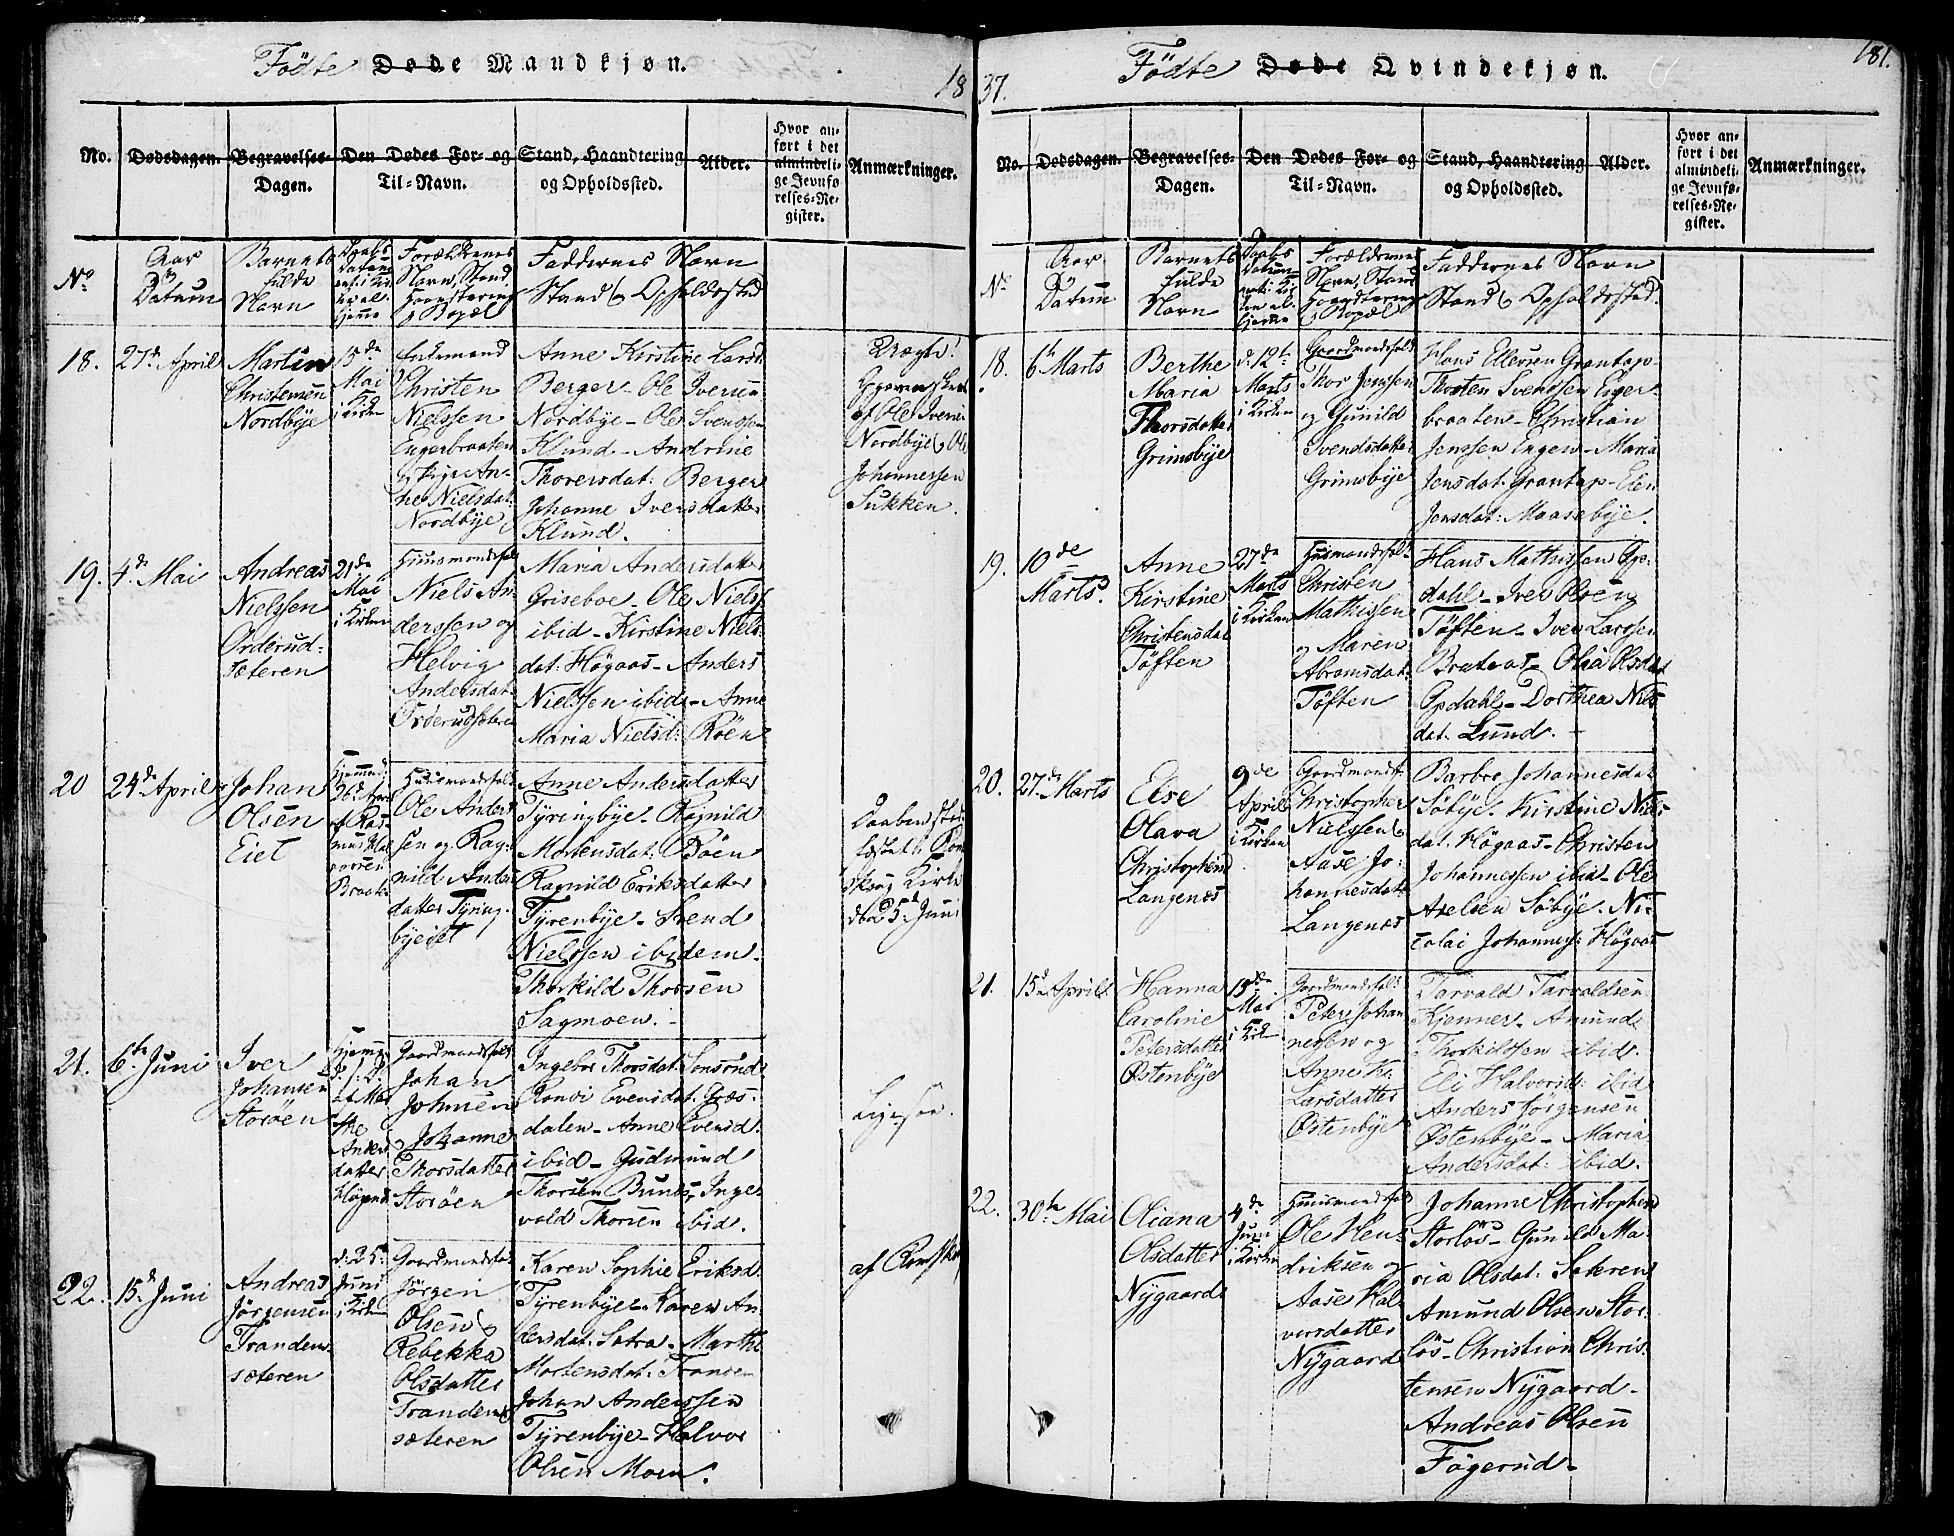 Födte Døde Mandkjøn.
18
No.
Dødsdagen.
Begravelses-
Dagen.
Den Dødes For- og
Til-Navn.
Stand, Haandtering
og Opholdssted.
Alder.
Hvor an-
ført i det
almindeli-
ge Jevnfø-
relses-Re-
gister.
Anmærkninger.
No
Aar
Datum
Barnets
fulde
Navn
Daabs
Datum
Forældrenes
Navn, Stand,
Haandtering
& Bopæl
Faddernes Navn
Stand & Opholdssted
18.
27de April
Martin
Christensen
Nordbÿe
15de
Mai
i Kirken
Enkemand
Christen
Nielssen
Engerbraaten
& Pige An-
ne Nielsdat:
Nordbÿe
Anne Kirstine Larsd:
Berger - Ole Iversen
Nordbÿe - Ole Svenssen
Klund - Andrine
Thorersdat: Berger
Johanne Iversdatter
Klund.
Uægte!
Opgaven skeet
af Ole Iversen
Nordbÿe & Ole
Johannessen
Sukken.
19.
4de Mai
Andreas
Nielssen
Orderud-
sæteren
21de
Mai
i Kirken
Huusmandsfolk
Niels An-
derssen og
Helvig
Andersdat:
Orderudsæteren
Maria Andersdatter
Griseboe - Ole Nielss:
ibid - Kirstine Niels-
dat: Högaas - Anders
Nielssen ibid - Anne
Maria Nielsd: Röen
20
24de April
Johan
Olsen
Eiet
Hjemmed:
26de April
af Ras-
mus Hal-
vorsen
Braate
Huusmandsfolk
Ole Anders-
sen og Rag-
nild Anders-
datter Tÿring-
bÿeiet
Anne Andersdatter
Tÿringbÿe - Ragnild
Mortensdat: Böen
Ragnild Eriksdatter
Tÿrenbÿe - Svend
Nielssen ibidem -
Thorkild Thorsen
Sagmoen. -
Daaben stad-
fæstet i Röm-
skog Kirke
den 25de Juni
21.
6te Juni
Iver
Johansen
Storöen
Hjemme-
d.
af Mar-
the
Anders
datter
Gaardmandsfolk
Johan
Johnsen
& Johanne
Thorsdatter
Storöen
Ingebor Thorsdat:
Ronvi Evensdat: Græs-
dalen - Anne Evensd:
ibid - Gudmund
Thorsen Bunes, Inge-
vold Thorsen ibid.
Ligesaa.
22.
15de Juni
Andreas
Jörgensen
Tranden-
sæteren
d: 25de
Juni
i Kirken
Gaardmandsfolk
Jörgen
Olsen &
Rebekka
Olsdatter
Tranden-
sæteren
Karen Sophie Eriksd:
Tÿrenbÿe - Karen An-
dersdat: Sætra - Marthe
Mortensdat:
Johan Anderssen
Tÿrenbÿe - Halvor
Olsen Moen.
af Römskog
181.
Födte Døde Qvindekjøn.
37.
No.
Dødsdagen.
Begravelses-
Dagen.
Den Dødes For- og
Til-Navn.
Stand, Haandtering
og Opholdssted.
Alder.
Hvor an-
ført i det
almindeli-
ge Jevnfø-
relses-Re-
gister.
Anmærkninger.
No
Aar
Datum
Barnets
fulde
Navn
Daabs
Datum
Forældrenes
Navn, Stand
Haandtering
& Bopæl
Faddernes Navn
Stand & Opholdssted.
18.
6te Marts
Berthe
Maria
Thorsdatter
Grimsbÿe
d: 12te
Marts
i Kirken
Gaardmandsfolk
Thor Jenssen
og Gunild
Svendsdatter
Grimsbÿe
Hans Ellevsen Grantop -
Thosten Svenssen Enger-
braaten - Christian
Jenssen Engen - Maria
Jensdat: Grantop - Elen
Jensdat: Maasebÿe.
19.
10de
Marts.
Anne
Kirstine
Christensdat
Töften
27de
Marts
i Kirken
Huusmandsfolk
Christen
Mathissen
og Maren
Abramsdat:
Töften
Hans Mathissen Op-
dahl - Iver Olsen
Töften - Iver Larssen
Brataas - Olia Olsdat
Opdahl - Dorthea Niels-
dat. Lund. -
20.
27de Marts
Else
Olava
Christophersd
Langenæs
9de
April
i Kirken
Gaardmandsf:
Christopher
Nielssen &
Aase Jo-
hannesdatter
Langenæs
Barbro Johannesdat:
Söbÿe - Kirstine Niels-
dat: Högaas - Christen
Johannessen ibid - Ole
Axelsen Söbÿe - Ni-
colai Johanness: Högaas
21.
15de April
Hanna
Caroline
Petersdatter
Östenbÿe
15de
Mai
i Kirk
Gaardmandsfolk
Peter Johan-
nessen og
Anne Kr.
Larsdatter
Östenbÿe
Tarvald Tarvaldsen
Kjenner - Amund
Thorkilssen ibid.
Eli Halvorsd: ibid
Anders Jörgensen
Östenbÿe - Maria
Andersdat: ibid.
22.
30te Mai
Oliana
Olsdatter
Nÿgaard
4de
Juni
i Kirken
Huusmandsfolk
Ole Hen-
driksen og
Aase Hal-
vorsdatter
Nÿgaard
Johanne Christophersd
Storlös - Gunild Ma-
ria Olsdat: Sæteren
Amund Olsen Stor-
lös - Christian Chris-
tensen Nÿgaard -
Andreas Olsen
Fögerud -